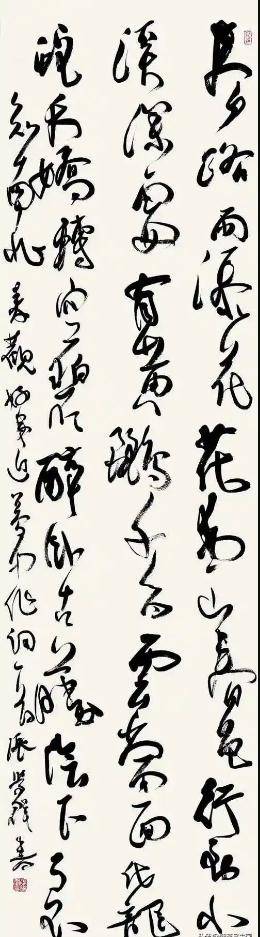 春路雨添花花動一山春色行到小
溪深處有黃鸝千百雲當面化龍
蛇夭矯轉空碧醉臥古藤陰下了不
知南北 秦觀好事近夢中作詞一首